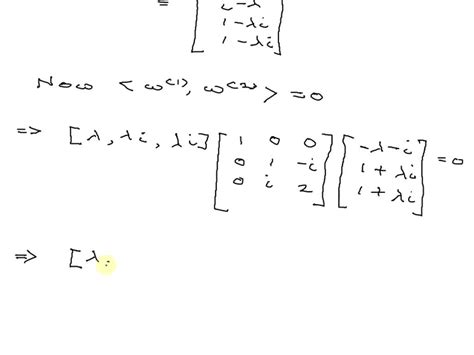 = [i-λ
1-λi
1-λi]
Now < ω⁽¹⁾, ω⁽²⁾ > = 0
⇒ [λ, λi, λi] [1 0 0; 0 1 -i; 0 i 2] [-λ-i; 1+λi; 1+λi] = 0
⇒ [λ.